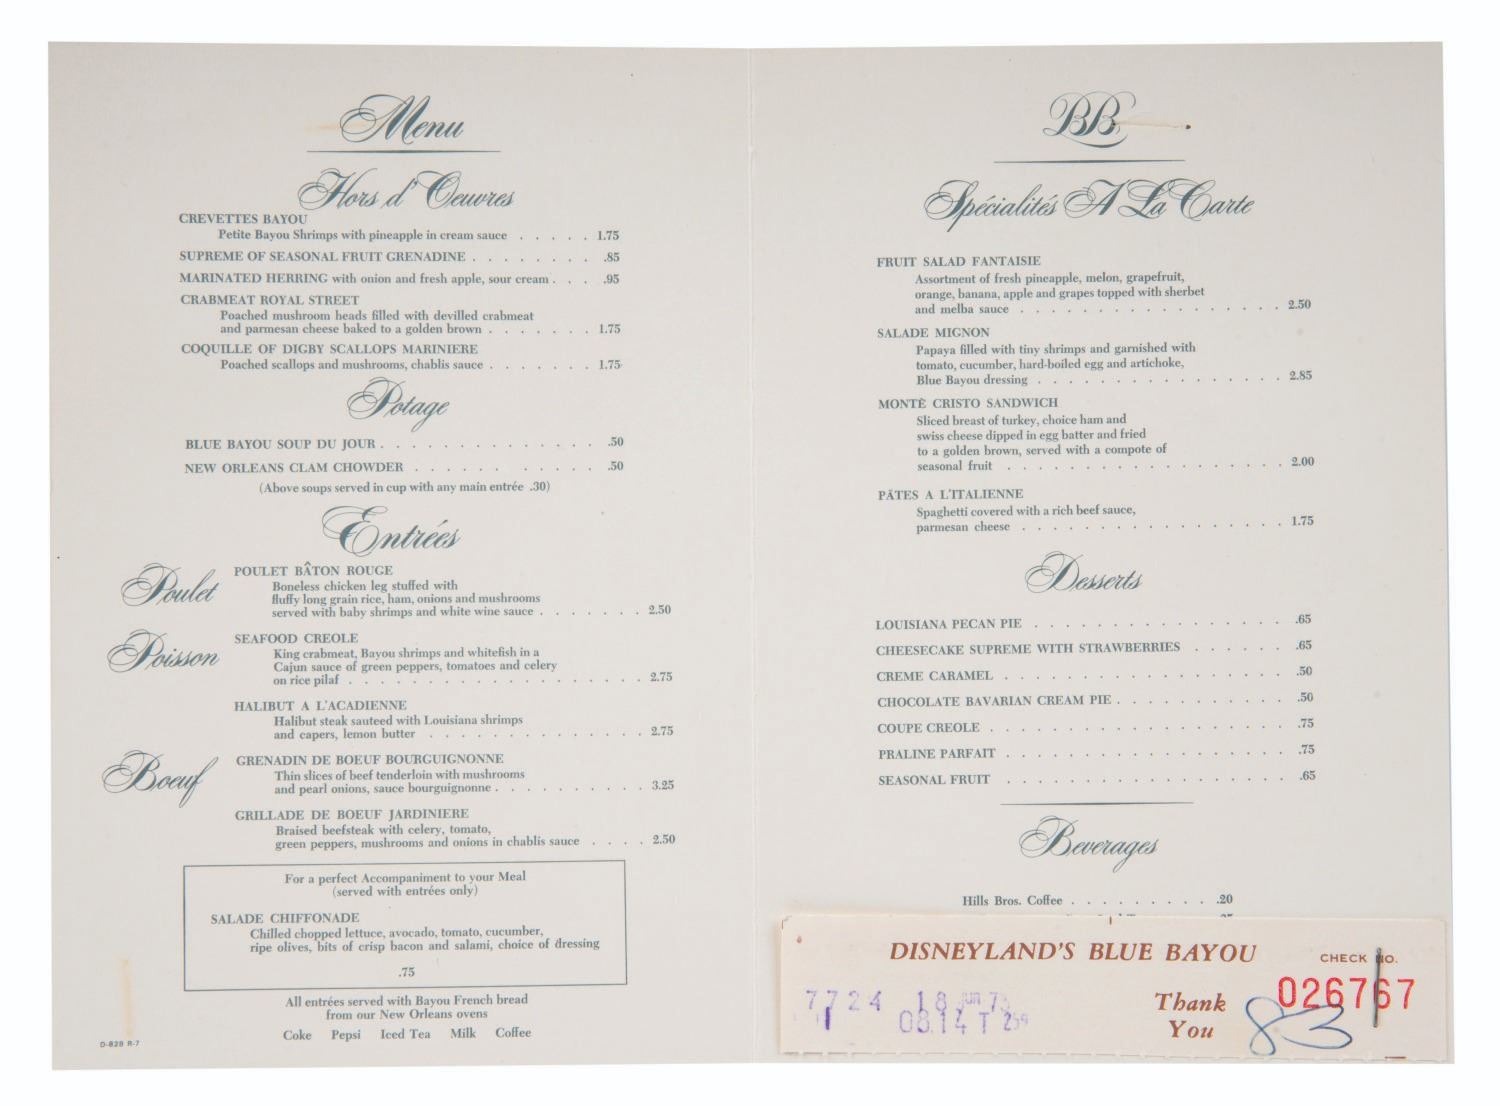 Menu
Hors d'Oeuvres
CREVETTES BAYOU
Petite Bayou Shrimps with pineapple in cream sauce . . . . . 1.75
SUPREME OF SEASONAL FRUIT GRENADINE . . . . . . . . .85
MARINATED HERRING with onion and fresh apple, sour cream . . . .95
CRABMEAT ROYAL STREET
Poached mushroom heads filled with devilled crabmeat
and parmesan cheese baked to a golden brown . . . . . . . 1.75
COQUILLE OF DIGBY SCALLOPS MARINIERE
Poached scallops and mushrooms, chablis sauce . . . . . . . 1.75
Potage
BLUE BAYOU SOUP DU JOUR . . . . . . . . . . . . . .50
NEW ORLEANS CLAM CHOWDER . . . . . . . . . . . .50
(Above soups served in cup with any main entrée .30)
Entrées
Poulet
POULET BÂTON ROUGE
Boneless chicken leg stuffed with
fluffy long grain rice, ham, onions and mushrooms
served with baby shrimps and white wine sauce . . . . . . . 2.50
Poisson
SEAFOOD CREOLE
King crabmeat, Bayou shrimps and whitefish in a
Cajun sauce of green peppers, tomatoes and celery
on rice pilaf . . . . . . . . . . . . . . . . . . . 2.75
HALIBUT A L'ACADIENNE
Halibut steak sauteed with Louisiana shrimps
and capers, lemon butter . . . . . . . . . . . . . . 2.75
Boeuf
GRENADIN DE BOEUF BOURGUIGNONNE
Thin slices of beef tenderloin with mushrooms
and pearl onions, sauce bourguignonne . . . . . . . . . . 3.25
GRILLADE DE BOEUF JARDINIERE
Braised beefsteak with celery, tomato,
green peppers, mushrooms and onions in chablis sauce . . . . 2.50
For a perfect Accompaniment to your Meal
(served with entrées only)
SALADE CHIFFONADE
Chilled chopped lettuce, avocado, tomato, cucumber,
ripe olives, bits of crisp bacon and salami, choice of dressing
.75
All entrées served with Bayou French bread
from our New Orleans ovens
Coke Pepsi Iced Tea Milk Coffee
D-828 R-7
BB
Spécialités A La Carte
FRUIT SALAD FANTAISIE
Assortment of fresh pineapple, melon, grapefruit,
orange, banana, apple and grapes topped with sherbet
and melba sauce . . . . . . . . . . . . . . . . . 2.50
SALADE MIGNON
Papaya filled with tiny shrimps and garnished with
tomato, cucumber, hard-boiled egg and artichoke,
Blue Bayou dressing . . . . . . . . . . . . . . . . 2.85
MONTÈ CRISTO SANDWICH
Sliced breast of turkey, choice ham and
swiss cheese dipped in egg batter and fried
to a golden brown, served with a compote of
seasonal fruit . . . . . . . . . . . . . . . . . . 2.00
PÂTES A L'ITALIENNE
Spaghetti covered with a rich beef sauce,
parmesan cheese . . . . . . . . . . . . . . . . . 1.75
Desserts
LOUISIANA PECAN PIE . . . . . . . . . . . . . . . . .65
CHEESECAKE SUPREME WITH STRAWBERRIES . . . . . . .65
CREME CARAMEL . . . . . . . . . . . . . . . . . . .50
CHOCOLATE BAVARIAN CREAM PIE . . . . . . . . . . . .50
COUPE CREOLE . . . . . . . . . . . . . . . . . . . .75
PRALINE PARFAIT . . . . . . . . . . . . . . . . . . .75
SEASONAL FRUIT . . . . . . . . . . . . . . . . . . .65
Beverages
Hills Bros. Coffee . . . . . . . . . . .20
DISNEYLAND'S BLUE BAYOU
CHECK NO.
026767
7724 18 JUN
0814 T
Thank
You
83